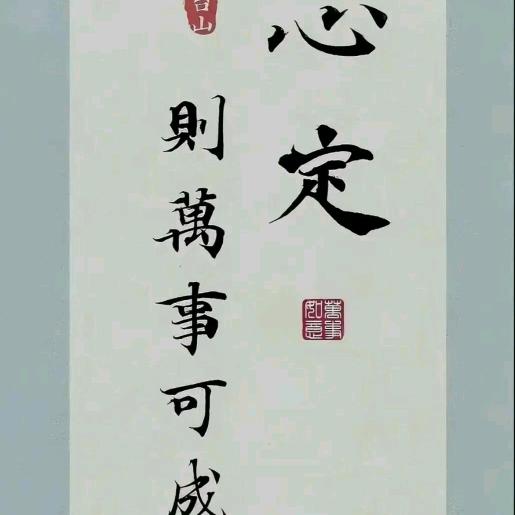 心定
萬事如意
台山
則萬事可成